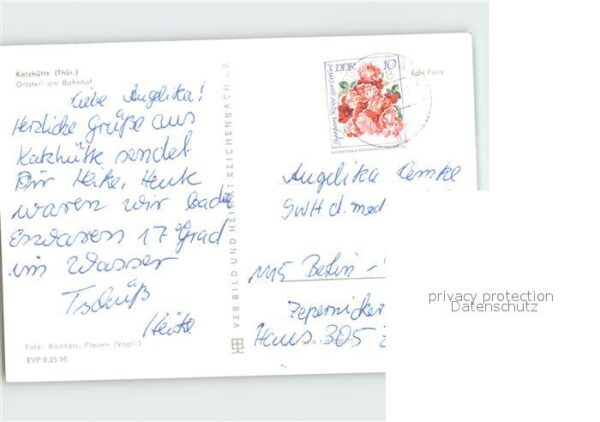 Katzhütte (Thür.)
Ortsteil am Bahnhof
Liebe Angelika!
Herzliche Grüße aus
Katzhütte sendet
Dir Heike. Heute
waren wir baden
Es waren 17 Grad
im Wasser
Tschüß
Heike
Foto: Raddatz, Plauen (Vogtl.)
EVP 0,25 M
VEB BILD UND HEIMAT REICHENBACH i. V.
DDR 10
Echt Foto
Angelika
GWH d. med
1115 Berlin -
Zepernicker
Haus 305
privacy protection
Datenschutz